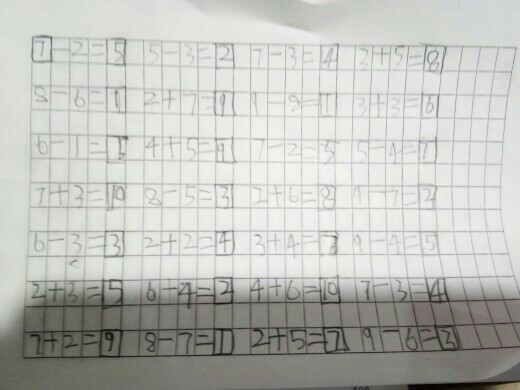 7-2=5 5-3=2 7-3=4 3+5=8
8-6=1 2+7=9 9-8=1 3+3=6
6-1=5 4+5=9 7-2=5 5-4=1
7+3=10 8-5=3 2+6=8 9-7=2
6-3=3 2+2=4 3+4=7 9-4=5
2+3=5 6-4=2 4+6=10 7-3=4
7+2=9 8-7=1 2+5=7 9-6=3